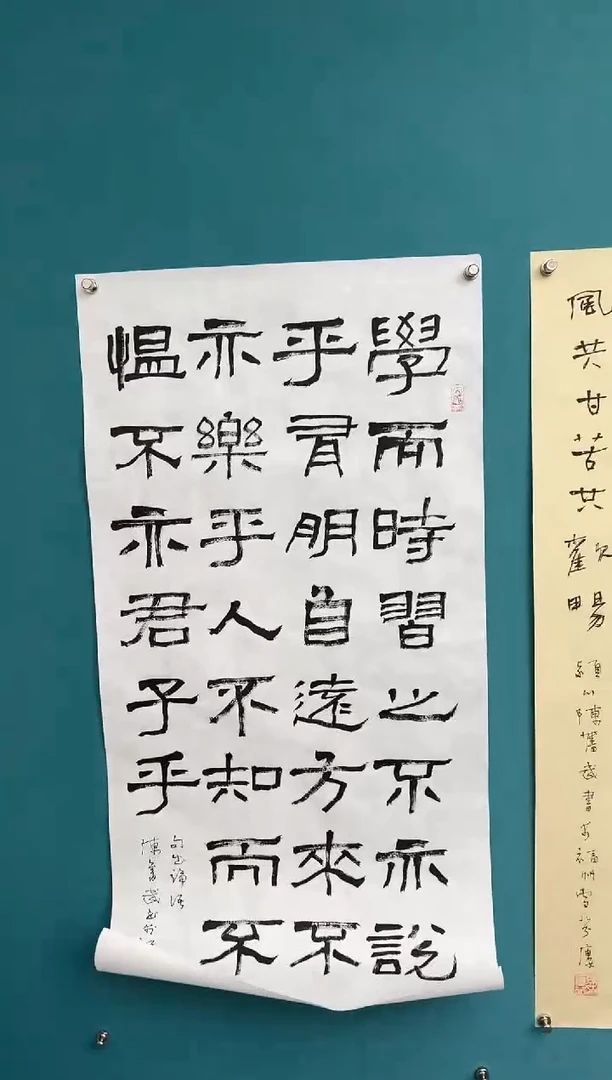 學而時習之不亦說
乎有朋自遠方來不
亦樂乎人不知而不
愠不亦君子乎
句出論語
陳奮武書於
風共甘苦共歡暢
川陳奮武書於福州